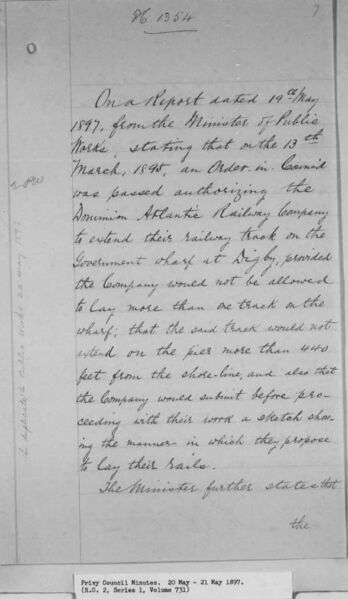 H. 1354
7
On a Report dated 19th May
1897, from the Minister of Public
Works, stating that on the 13th
March, 1895, an Order-in-Council
was passed authorizing the
Dominion Atlantic Railway Company
to extend their railway track on the
Government wharf at Digby, provided
the Company would not be allowed
to lay more than one track on the
wharf; that the said track would not
extend on the pier more than 440
feet from the shore-line, and also that
the Company would submit before pro-
ceeding with their work a sketch show-
ing the manner in which they propose
to lay their rails.
The Minister further states that
the
Public Works 22 May 1897
Privy Council Minutes. 20 May - 21 May 1897.
(R.G. 2, Series 1, Volume 731)